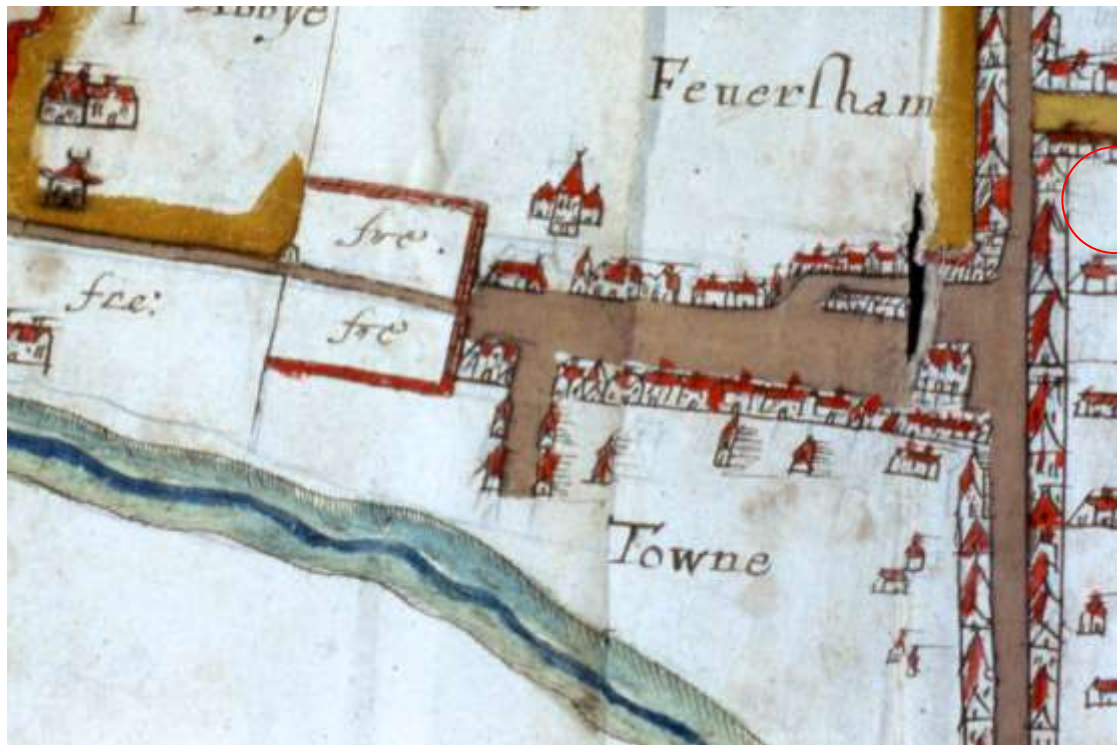 Abbye
Feuersham
fre.
fre:
fre
Towne